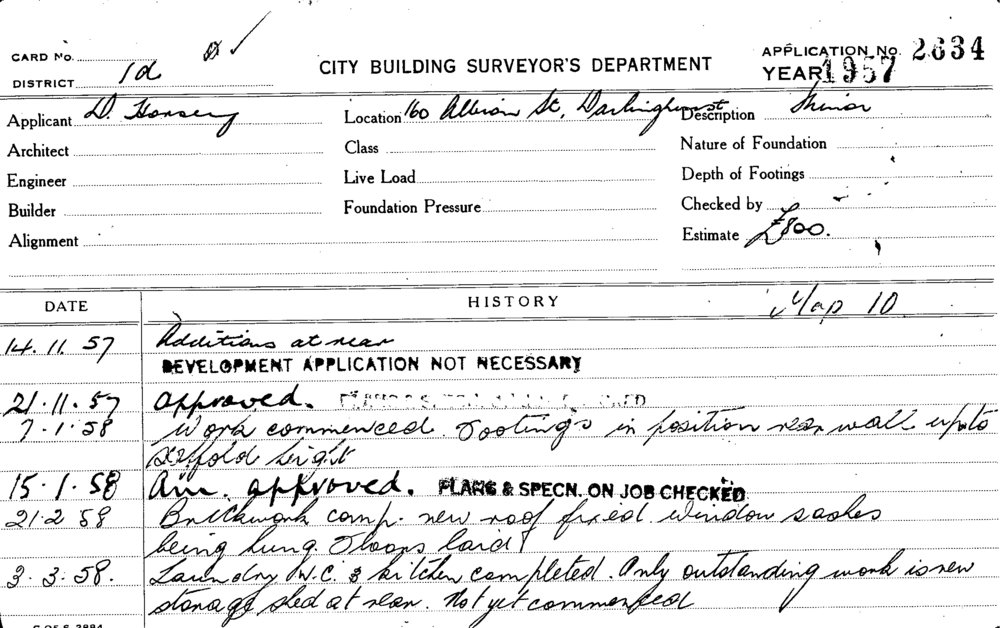 CARD No.
DISTRICT 1d
CITY BUILDING SURVEYOR'S DEPARTMENT
APPLICATION No. 2634
YEAR 1957
Applicant D.
Location 160 Albion St, Darlinghurst
Description Minor
Architect
Class
Nature of Foundation
Engineer
Live Load
Depth of Footings
Builder
Foundation Pressure
Checked by
Alignment
Estimate £800.
DATE
HISTORY
Map 10
14.11.57 Additions at rear
DEVELOPMENT APPLICATION NOT NECESSARY
21.11.57 approved.
7.1.58 Work commenced. Footings in position rear wall up to
scaffold height
15.1.58 approved. PLANS & SPECN. ON JOB CHECKED
21.2 58 Brickwork comp. new roof fixed. Window sashes
being hung. Floors laid
3.3.58. Laundry W.C. & kitchen completed. Only outstanding work is new
storage shed at rear. Not yet commenced